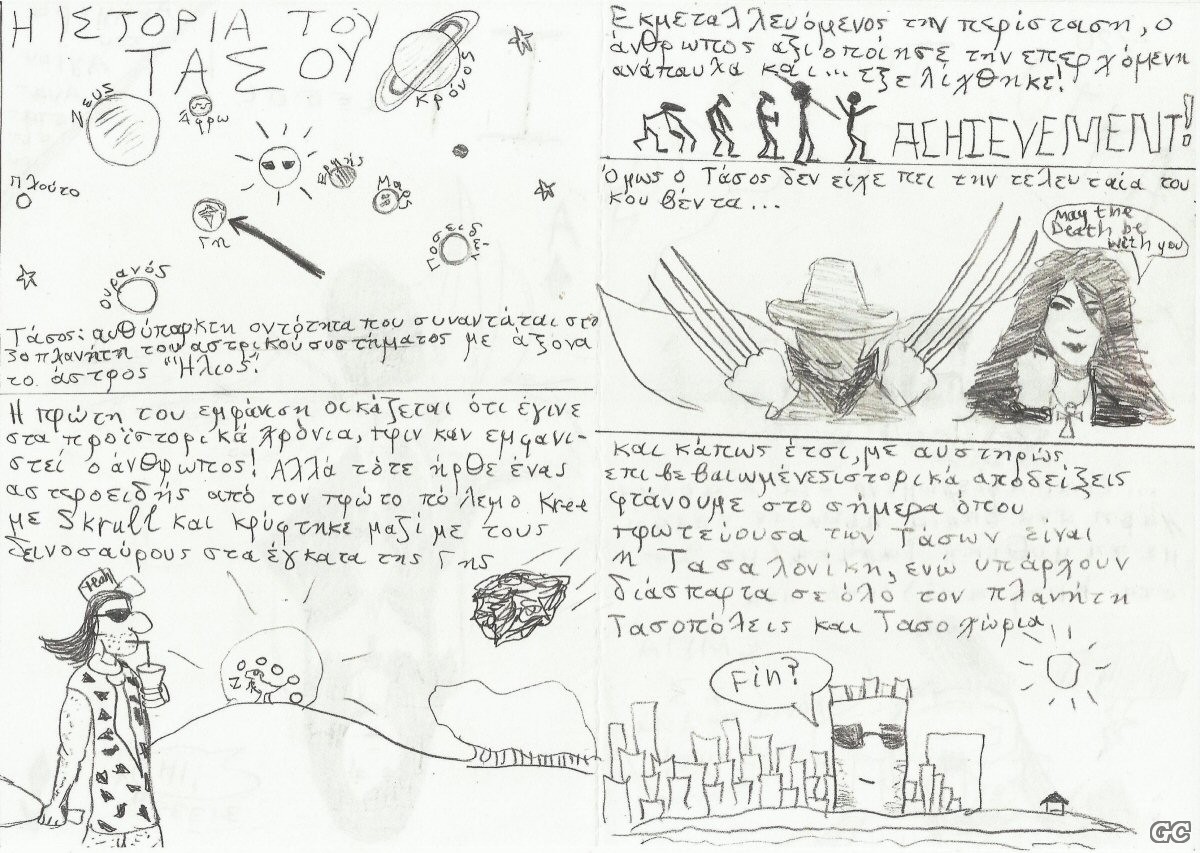 Η ΙΣΤΟΡΙΑ ΤΟΥ
ΤΑΣΟΥ
Κρόνος
Ζευς
Άφρω
Ερμής
Μαρς
Πλούτο
Γη
Ποσειδ
Ουρανός
Τάσος: αυθύπαρκτη οντότητα που συναντάται στο
3ο πλανήτη του αστρικού συστήματος με άξονα
το άστρος "Ήλιος".
Η πρώτη του εμφάνιση εικάζεται ότι έγινε
στα προϊστορικά χρόνια, πριν καν εμφανι-
στεί ο άνθρωπος! Αλλά τότε ήρθε ένας
αστεροειδής από τον πρώτο πόλεμο Kree
με Skrull και κρύφτηκε μαζί με τους
δεινοσαύρους στα έγκατα της Γης
Yeah
Εκμεταλλευόμενος την περίσταση, ο
άνθρωπος αξιοποίησε την επερχόμενη
ανάπαυλα και... εξελίχθηκε!
ACHIEVEMENT!
Όμως ο Τάσος δεν είχε πει την τελευταία του
κουβέντα...
May the
Death be
with you
και κάπως έτσι, με αυστηρώς
επιβεβαιωμένες ιστορικά αποδείξεις
φτάνουμε στο σήμερα όπου
πρωτεύουσα των Τάσων είναι
η Τασαλονίκη, ενώ υπάρχουν
διάσπαρτα σε όλο τον πλανήτη
Τασοπόλεις και Τασοχώρια
Fin?
GC